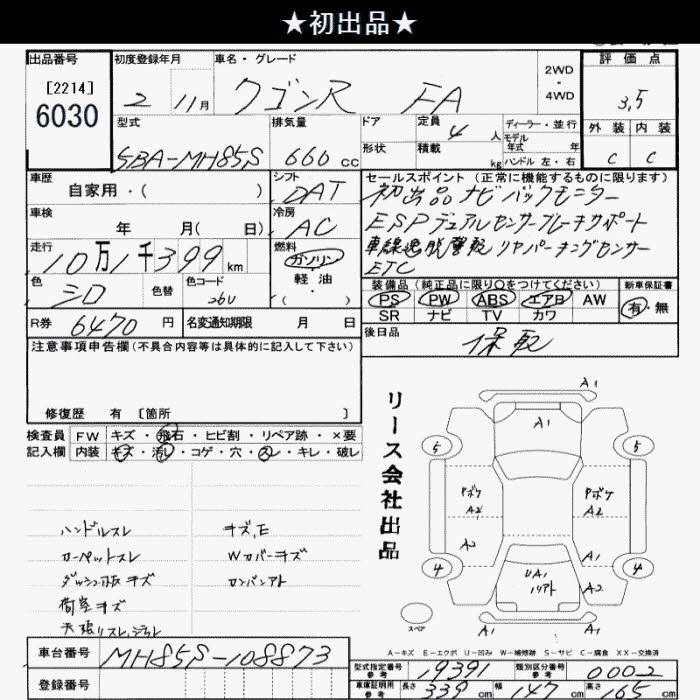 ★初出品★
出品番号
[2214]
6030
初度登録年月
2 11月
車名・グレード
ワゴンR FA
2WD
・
4WD
評価点
3.5
外装 内装
C C
型式
5BA-MH85S
排気量
660 cc
ドア
形状
定員 4 人
積載 kg
ディーラー・並行
モデル年式 年
ハンドル 左・右
車歴
自家用・( )
シフト
DAT
セールスポイント(正常に機能するものに限ります)
初出品 ナビ バックモニター
ESP デュアルセンサーブレーキサポート
車線逸脱警報 リヤパーキングセンサー
ETC
車検
年 月( 日)
冷房
AC
走行
10万1千399km
燃料
ガソリン
軽油
( ・ )
色
シロ
色替
色コード
26U
装備品(純正品に限り〇をつけてください)
PS PW ABS エアB AW
SR ナビ TV カワ
新車保証書
有・無
R券 6470 円
名変通知期限 月 日
後日品
保取
注意事項申告欄(不具合内容等は具体的に記入して下さい)
修復歴 有 [箇所 ]
検査員記入欄
FW キズ・飛石・ヒビ割・リペア跡・×要
内装 キズ・汚レ・コゲ・穴・スレ・キレ・破レ
ハンドルスレ
カーペットスレ
ダッシュ板キズ
荷室キズ
天張リスレ,ジラレ
キズ,E
Wカバーキズ
カンバンアト
リース会社出品
A1
A1
5
5
Pボケ
A2
Pボケ
A2
A2
A1
4
4
UA1
リアト
A2
A1
A1
スペア
A-キズ E-エクボ U-凹み W-補修跡 S-サビ C-腐食 XX-交換済
車台番号 MH85S-108873
登録番号
型式指定番号 参考 19391
類別区分番号 参考 0002
車庫証明用 参考 長さ 339 cm 幅 147 cm 高さ 165 cm